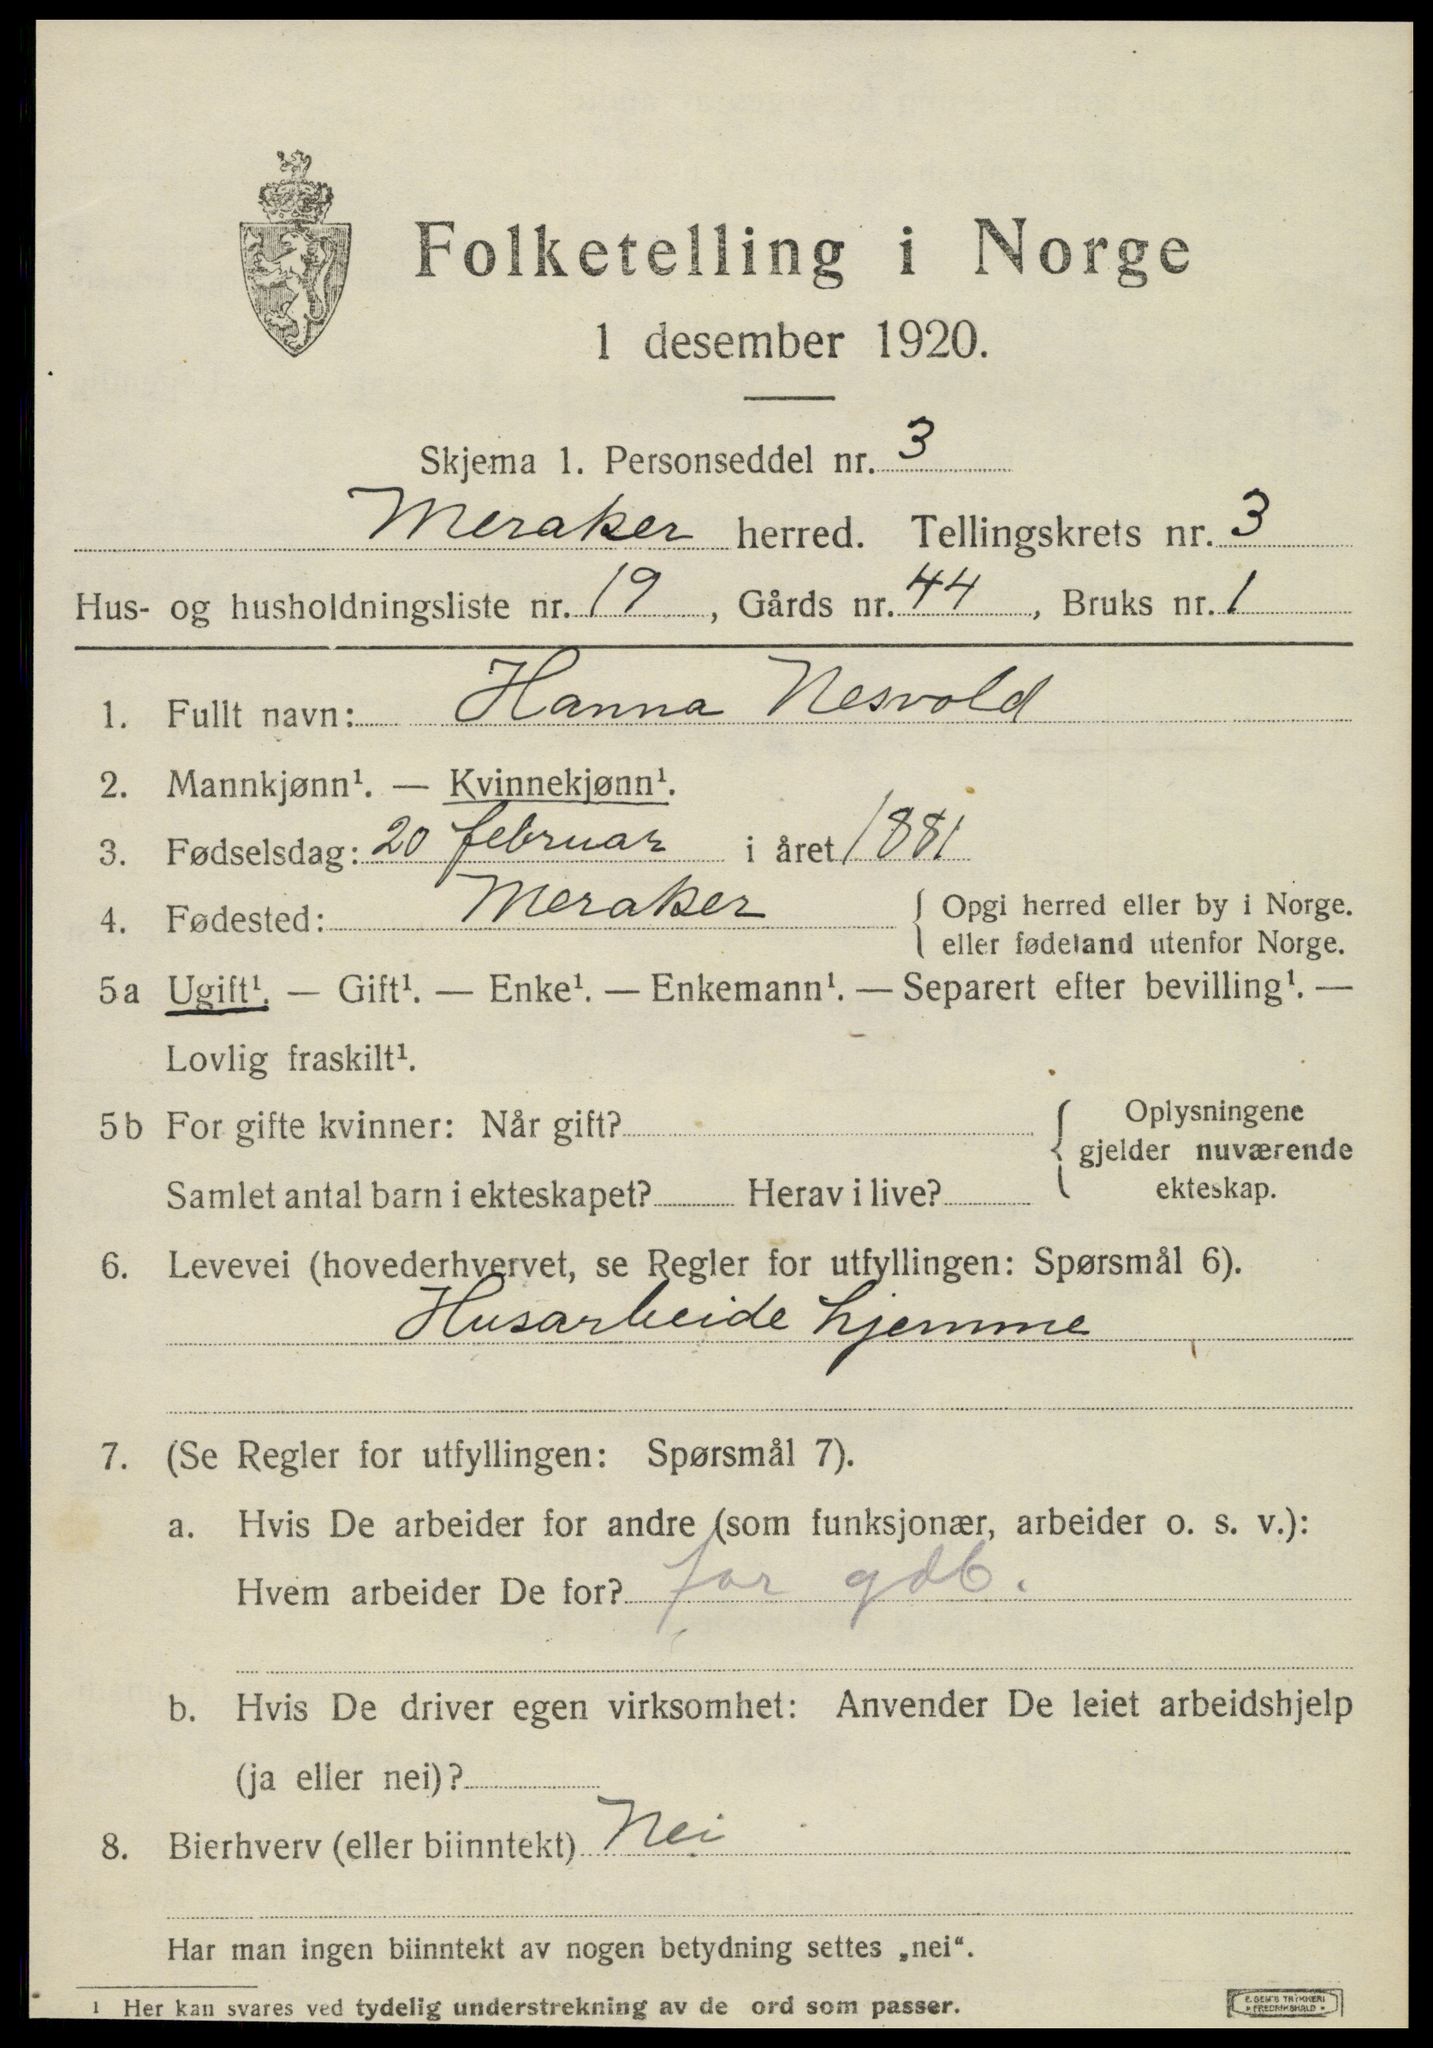 Folketelling i Norge
1 desember 1920.
Skjema 1. Personseddel nr. 3
Meraker herred. Tellingskrets nr. 3
Hus- og husholdningsliste nr. 19, Gårds nr. 44, Bruks nr. 1
1. Fullt navn: Hanna Nesvold
2. Mannkjønn¹. — Kvinnekjønn¹.
3. Fødselsdag: 20 februar i året 1881
4. Fødested: Meraker { Opgi herred eller by i Norge.
eller fødeland utenfor Norge.
5 a Ugift¹. — Gift¹. — Enke¹. — Enkemann¹. — Separert efter bevilling¹. —
Lovlig fraskilt¹.
5 b For gifte kvinner: Når gift? { Oplysningene
gjelder nuværende
Samlet antal barn i ekteskapet? Herav i live? ekteskap.
6. Levevei (hovederhvervet, se Regler for utfyllingen: Spørsmål 6).
Husarbeide hjemme
7. (Se Regler for utfyllingen: Spørsmål 7).
a. Hvis De arbeider for andre (som funksjonær, arbeider o. s. v.):
Hvem arbeider De for? far gdb.
b. Hvis De driver egen virksomhet: Anvender De leiet arbeidshjelp
(ja eller nei)?
8. Bierhverv (eller biinntekt) Nei
Har man ingen biinntekt av nogen betydning settes „nei“.
¹ Her kan svares ved tydelig understrekning av de ord som passer.
E. SEM'S TRYKKERI
FREDRIKSHALD